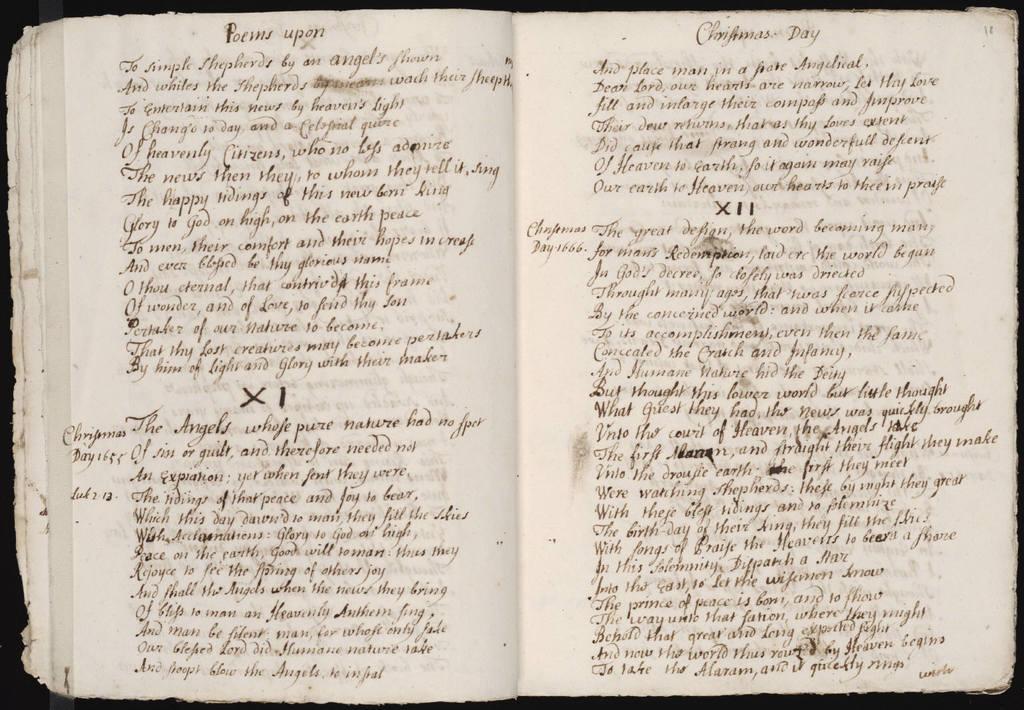 Poems upon
To simple Shepherds by an angel's shown
And whiles the Shepherds wach their sheep
To Entertain this news by heaven's Light
Is Chang'd to day, and a Celestial quire
Of heavenly Citizens, who no less admire
The news then they, to whom they tell it, sing
The happy tidings of this new born King
Glory to God on high, on the earth peace
To men, their comfort and their hopes increase
And ever blessed be thy glorious name
O thou eternal, that contriv'dst this frame
Of wonder, and of Love, to send thy Son
Pertaker of our Nature to become,
That thy Lost creatures may become pertakers
By him of Light and Glory with their maker
XI
Christmas Day 1655
The Angels, whose pure nature had no spot
Of sin or guilt, and therefore needed not
An Expiation; yet when sent they were,
Luk 2. 13.
The tidings of that peace and Joy to bear,
Which this day dawn'd to man, they fill the skies
With Acclamations: Glory to God on high,
Peace on the earth, Good will to man: thus they
Rejoyce to see the spring of others joy
And shall the Angels when the news they bring
Of bliss to man an Heavenly Anthem sing,
And man be silent: man, for whose only sake
Our blessed Lord did Humane nature take
And stoopt blow the Angels, to instal
Christmas Day
18
And place man in a state Angelical,
Dear Lord, our hearts are narrow, Let thy Love
fill and inlarge their compass and Improve
Their dew returns, that as thy Loves extent
Did cause that strang and wonderfull descent
Of Heaven to Earth; So it again may raise
Our earth to Heaven, our hearts to thee in praise
XII
Christmas Day 1666.
The great design, the word becoming man,
for mans Redemption, laid ere the world began
In God's decree, so closely was driected
Throught many ages, that twas scarce suspected
By the concerned world: and when it came
To its accomplishment, even then the same
Concealed the Cratch and Infancy,
And Humane Nature hid the Deity
But thought this lower world but little thought
What Guest they had, the news was quickly brought
Unto the court of Heaven, the Angels take
The first Alaram, and straight their flight they make
Unto the drousie earth: the first they meet
Were watching Shepherds: these by night they great
With these blest tidings and to solemnize
The birth-day of their King, they fill the skies
With songs of Praise the Heavens to bear a share
In this Solemnity, Dispatch a Star
Into the East, to Let the wisemen know
The prince of peace is born, and to show
The way unto that sation, where they might
Behold that great and Long expected sight
And now the world thus rowz'd by Heaven begins
To take the Alaram, and it quickly rings
with